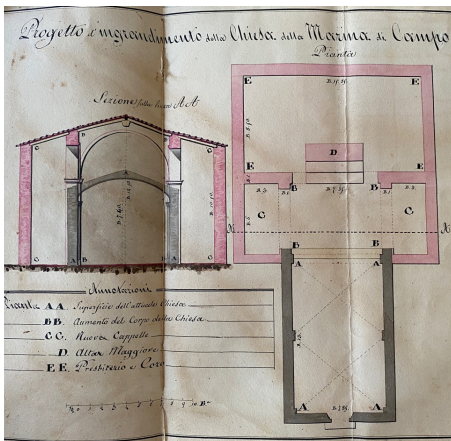 Progetto d'ingrandimento della Chiesa della Marina di Campo
Pianta
Sezione sulla linea AA
E E
B
C C
D
E E
B B
C C
A
B B
A A
C A A C
A A
Annotazioni
Pianta AA. Superficie dell'attuale Chiesa
BB. Aumento del Corpo della Chiesa
CC. Nuove Cappelle
D. Altar Maggiore
EE. Presbiterio e Coro